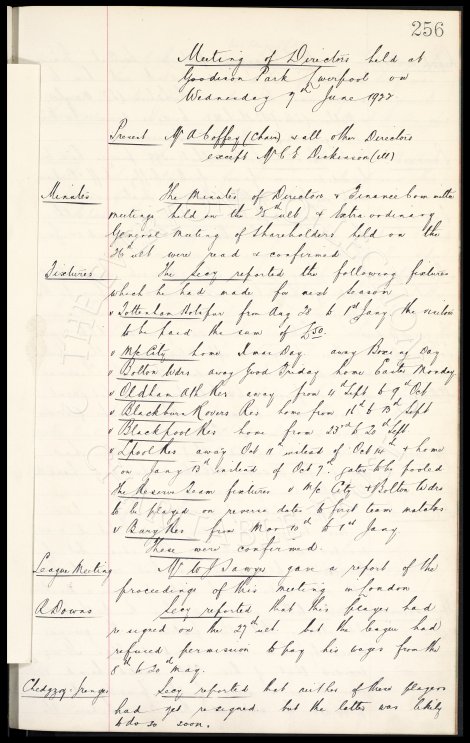 256
Meeting of Directors held at
Goodison Park Liverpool on
Wednesday 7th June 1922
Present Mr A Coffey (Chair) & all other Directors
except Mr C E Dickinson (ill)
Minutes The Minutes of Directors & Finance Committee
meetings held on the ulto & Extraordinary
General Meeting of Shareholders held on the
26th ulto were read & confirmed
Fixtures The Secy reported the following fixtures
which he had made for next season
v Tottenham Hotspur from Aug 28 to 1st Jany, the visitors
to be paid the sum of £50.
v M/c City home Xmas Day away Boxing Day
v Bolton Wdrs away Good Friday home Easter Monday
v Oldham Ath Res away from 4th Sept to 9th Oct
v Blackburn Rovers Res home from 16th to 13th Sept
v Blackpool Res home from 23rd to 20th Sept
v Lpool Res away Oct 11th instead of Oct 14th & home
on Jany 13th instead of Oct 7th, gates to be pooled
The Reserve Team fixtures v M/c City & Bolton Wdrs
to be played on reverse dates to first team matches
v Bury Res from Mar 10th to 1st Jany
These were confirmed.
League Meeting Mr W J Sawyer gave a report of the
proceedings of this meeting in London
R Downs Secy reported that this player had
re signed on the 27th ult. but the league had
refused permission to pay his wages from the
8th to 20th May.
Chedgzoy - Secy reported that neither of these players
had yet re signed but the latter was likely
to do so soon.